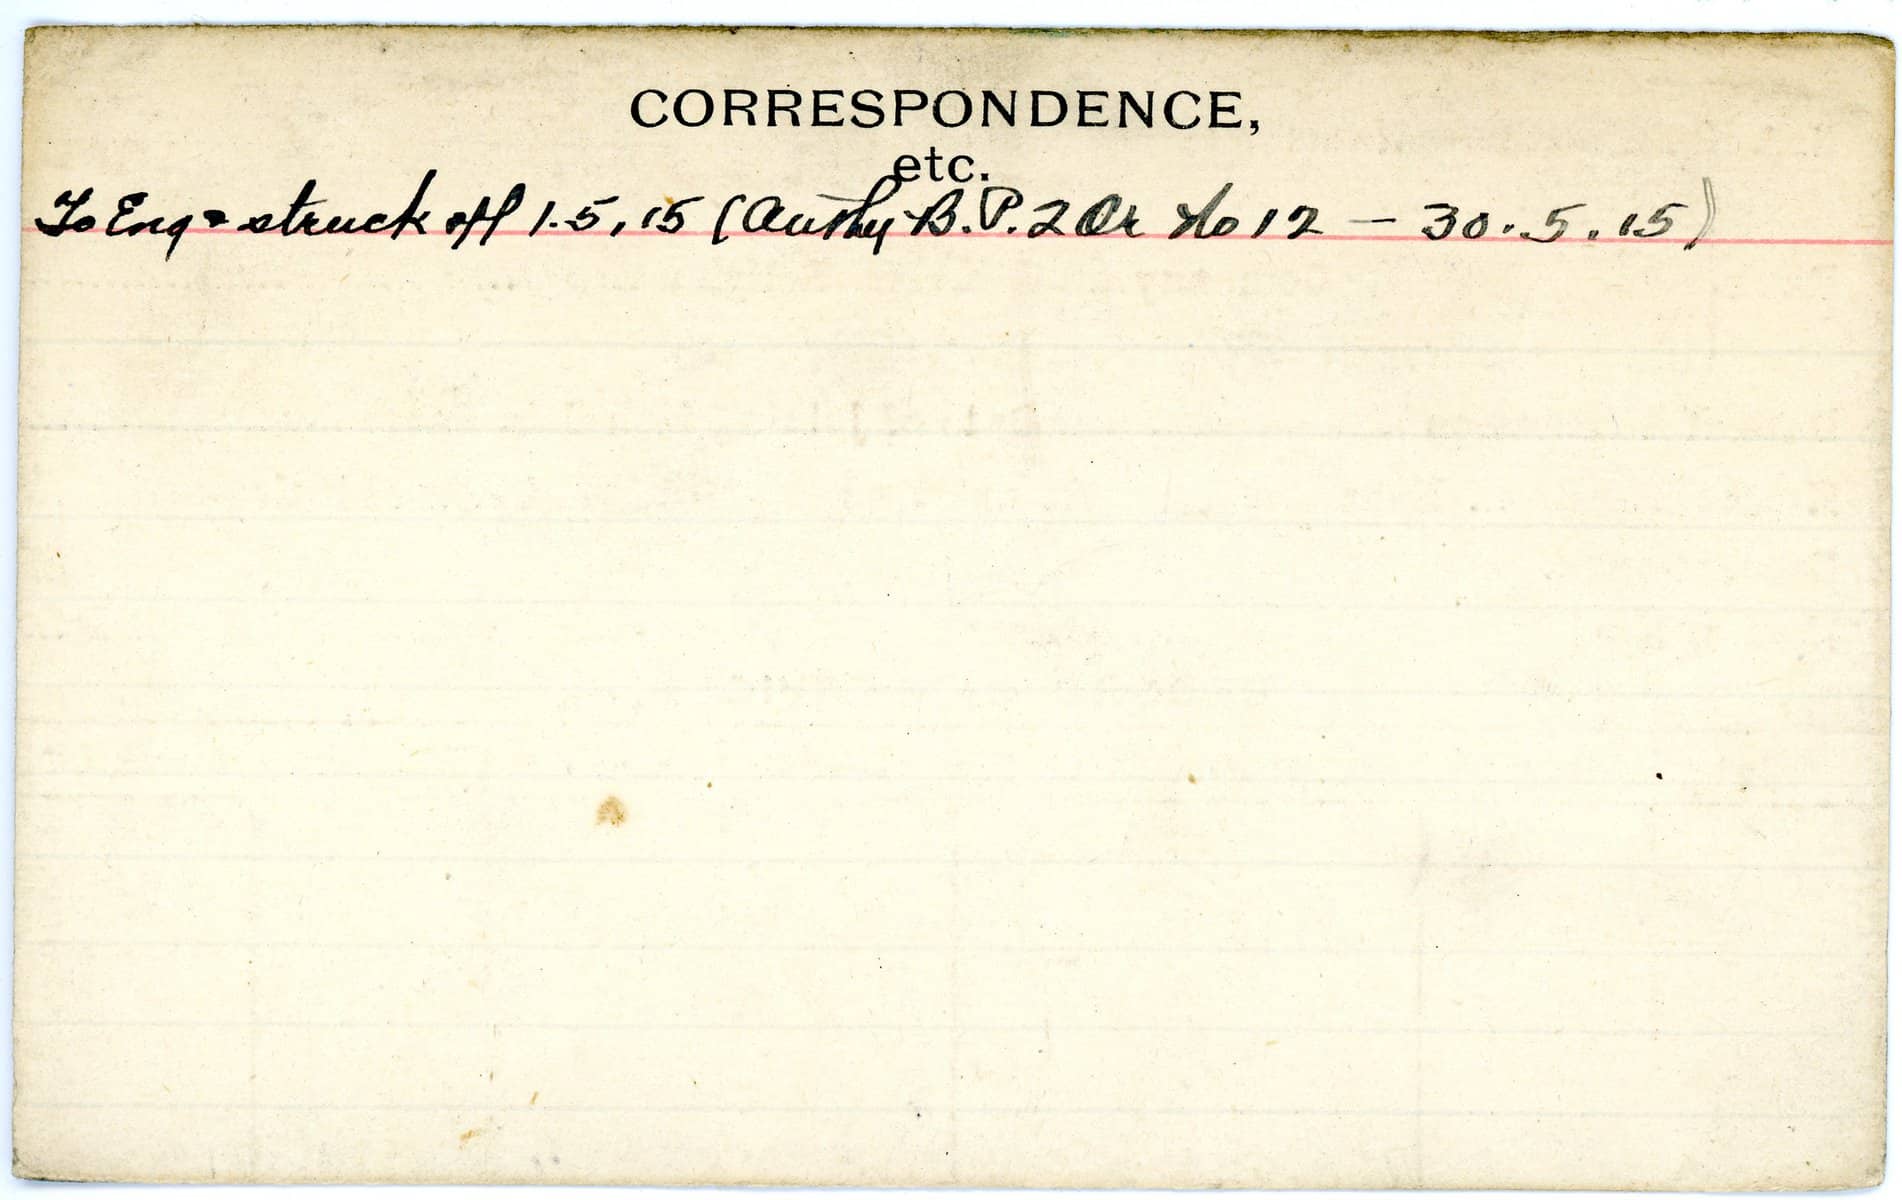 CORRESPONDENCE,
etc.
To Eng & struck off 1.5.15 (Authy B.P. 2 Or No 12 — 30.5.15)